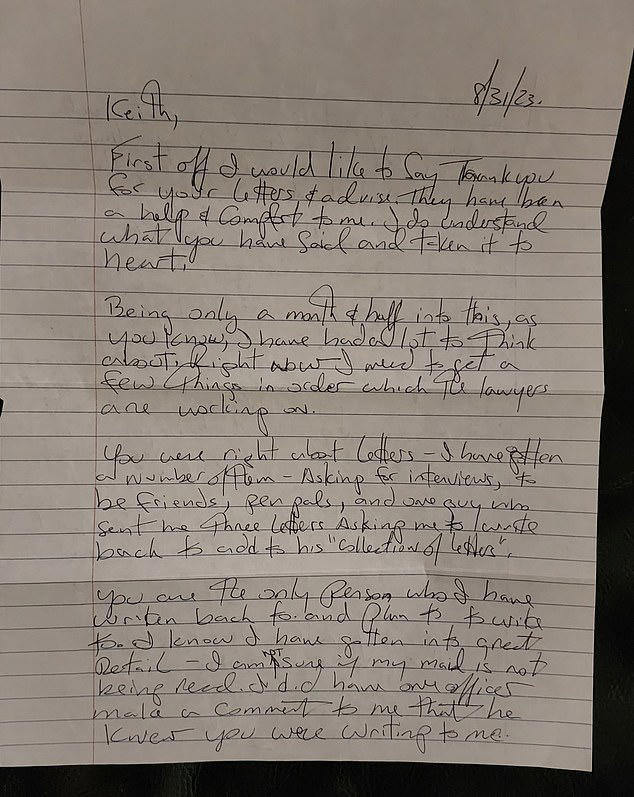 8/31/23.
Keith,
First off I would like to say Thank you
for your letters & advise. They have been
a help & comfort to me. I do understand
what you have said and taken it to
heart.
Being only a month & half into this, as
you know, I have had a lot to think
about. Right now I need to get a
few things in order which the lawyers
are working on.
You were right about letters - I have gotten
a number of them - Asking for interviews, to
be friends, pen pals, and one guy who
sent me three letters Asking me to write
back to add to his "collection of letters".
You are the only Person who I have
written back to. and Plan to to write
to. I know I have gotten into great
Detail - I am NOT sure if my mail is not
being read. I did have one officer
make a comment to me that he
knew you were writing to me.